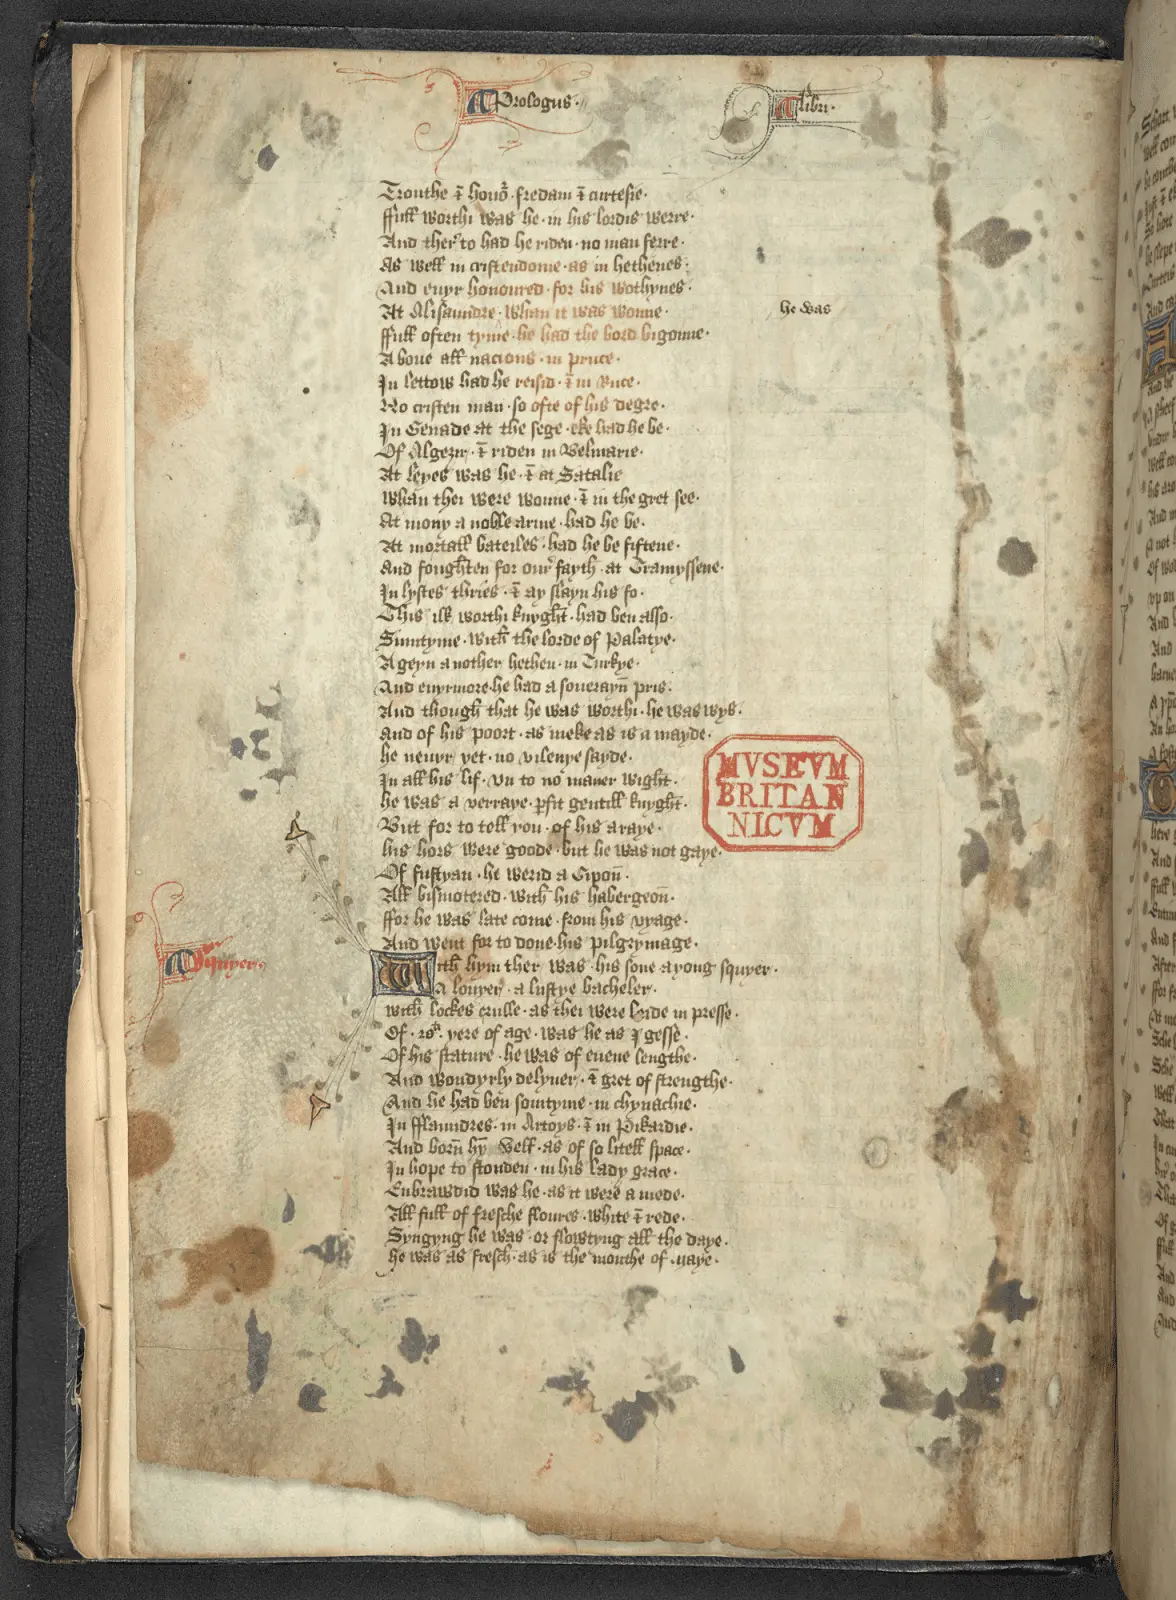 Prologus.
libri.
Trouthe & honour. fredam & curtesie.
ffull worthi was he. in his lordis werre.
And therto had he riden. no man ferre.
As well in cristendome. as in hethenes:
And euyr honoured. for his wothynes.
At Alisaundre. whan it was wonne.
he was
ffull often tyme. he had the bord bigonne.
Aboue all nacions. in pruce.
In lettow had he reisid. & in Ruce.
No cristen man. so ofte of his degre.
In Genade at the sege. eke had he be.
Of Algezir. & riden in Belmarie.
At leyes was he. & at Satalie
Whan thei were wonne. & in the gret see.
At mony a noble arme. had he be.
At mortall bateiles. had he be fiftene.
And foughten for our fayth. at Tramyssene.
In lystes thries. & ay slayn his fo.
This ilk worthi knyght. had ben also.
Sumtyme. with the lorde of Palatye.
Ageyn another hethen. in Turkye.
And euyrmore. he had a souerayn pris.
And though that he was worthi. he was wys.
And of his poort. as meke as is a mayde.
he neuyr yet. no vilenye sayde.
In all his lif. vn to no maner wight.
he was a verraye. pfit gentill knyght.
But for to tell you. of his araye.
his hors were goode. but he was not gaye.
Of fustyan. he werid a Gipon.
All bismotered. with his habergeon.
ffor he was late come. from his vyage.
And went for to done. his pilgrymage.
Squyer.
With hym ther was. his sone a yong squyer.
A louyer. a lustye bacheler.
with lockes crulle. as thei were leide in presse.
Of. xxti. yere of age. was he as I gesse.
Of his stature. he was of euene lengthe.
And wondyrly delyuer. & gret of strengthe.
And he had ben somtyme. in chyuachie.
In fflaundres. in Artoys. & in Pikardie.
And born hym well. as of so litell space.
In hope to stonden. in his lady grace.
Enbrawdid was he. as it were a mede.
All full of fresche floures. white & rede.
Syngyng he was. or flowtyng all the daye.
he was as fresch. as is the monthe of maye.
MVSEVM
BRITAN
NICVM